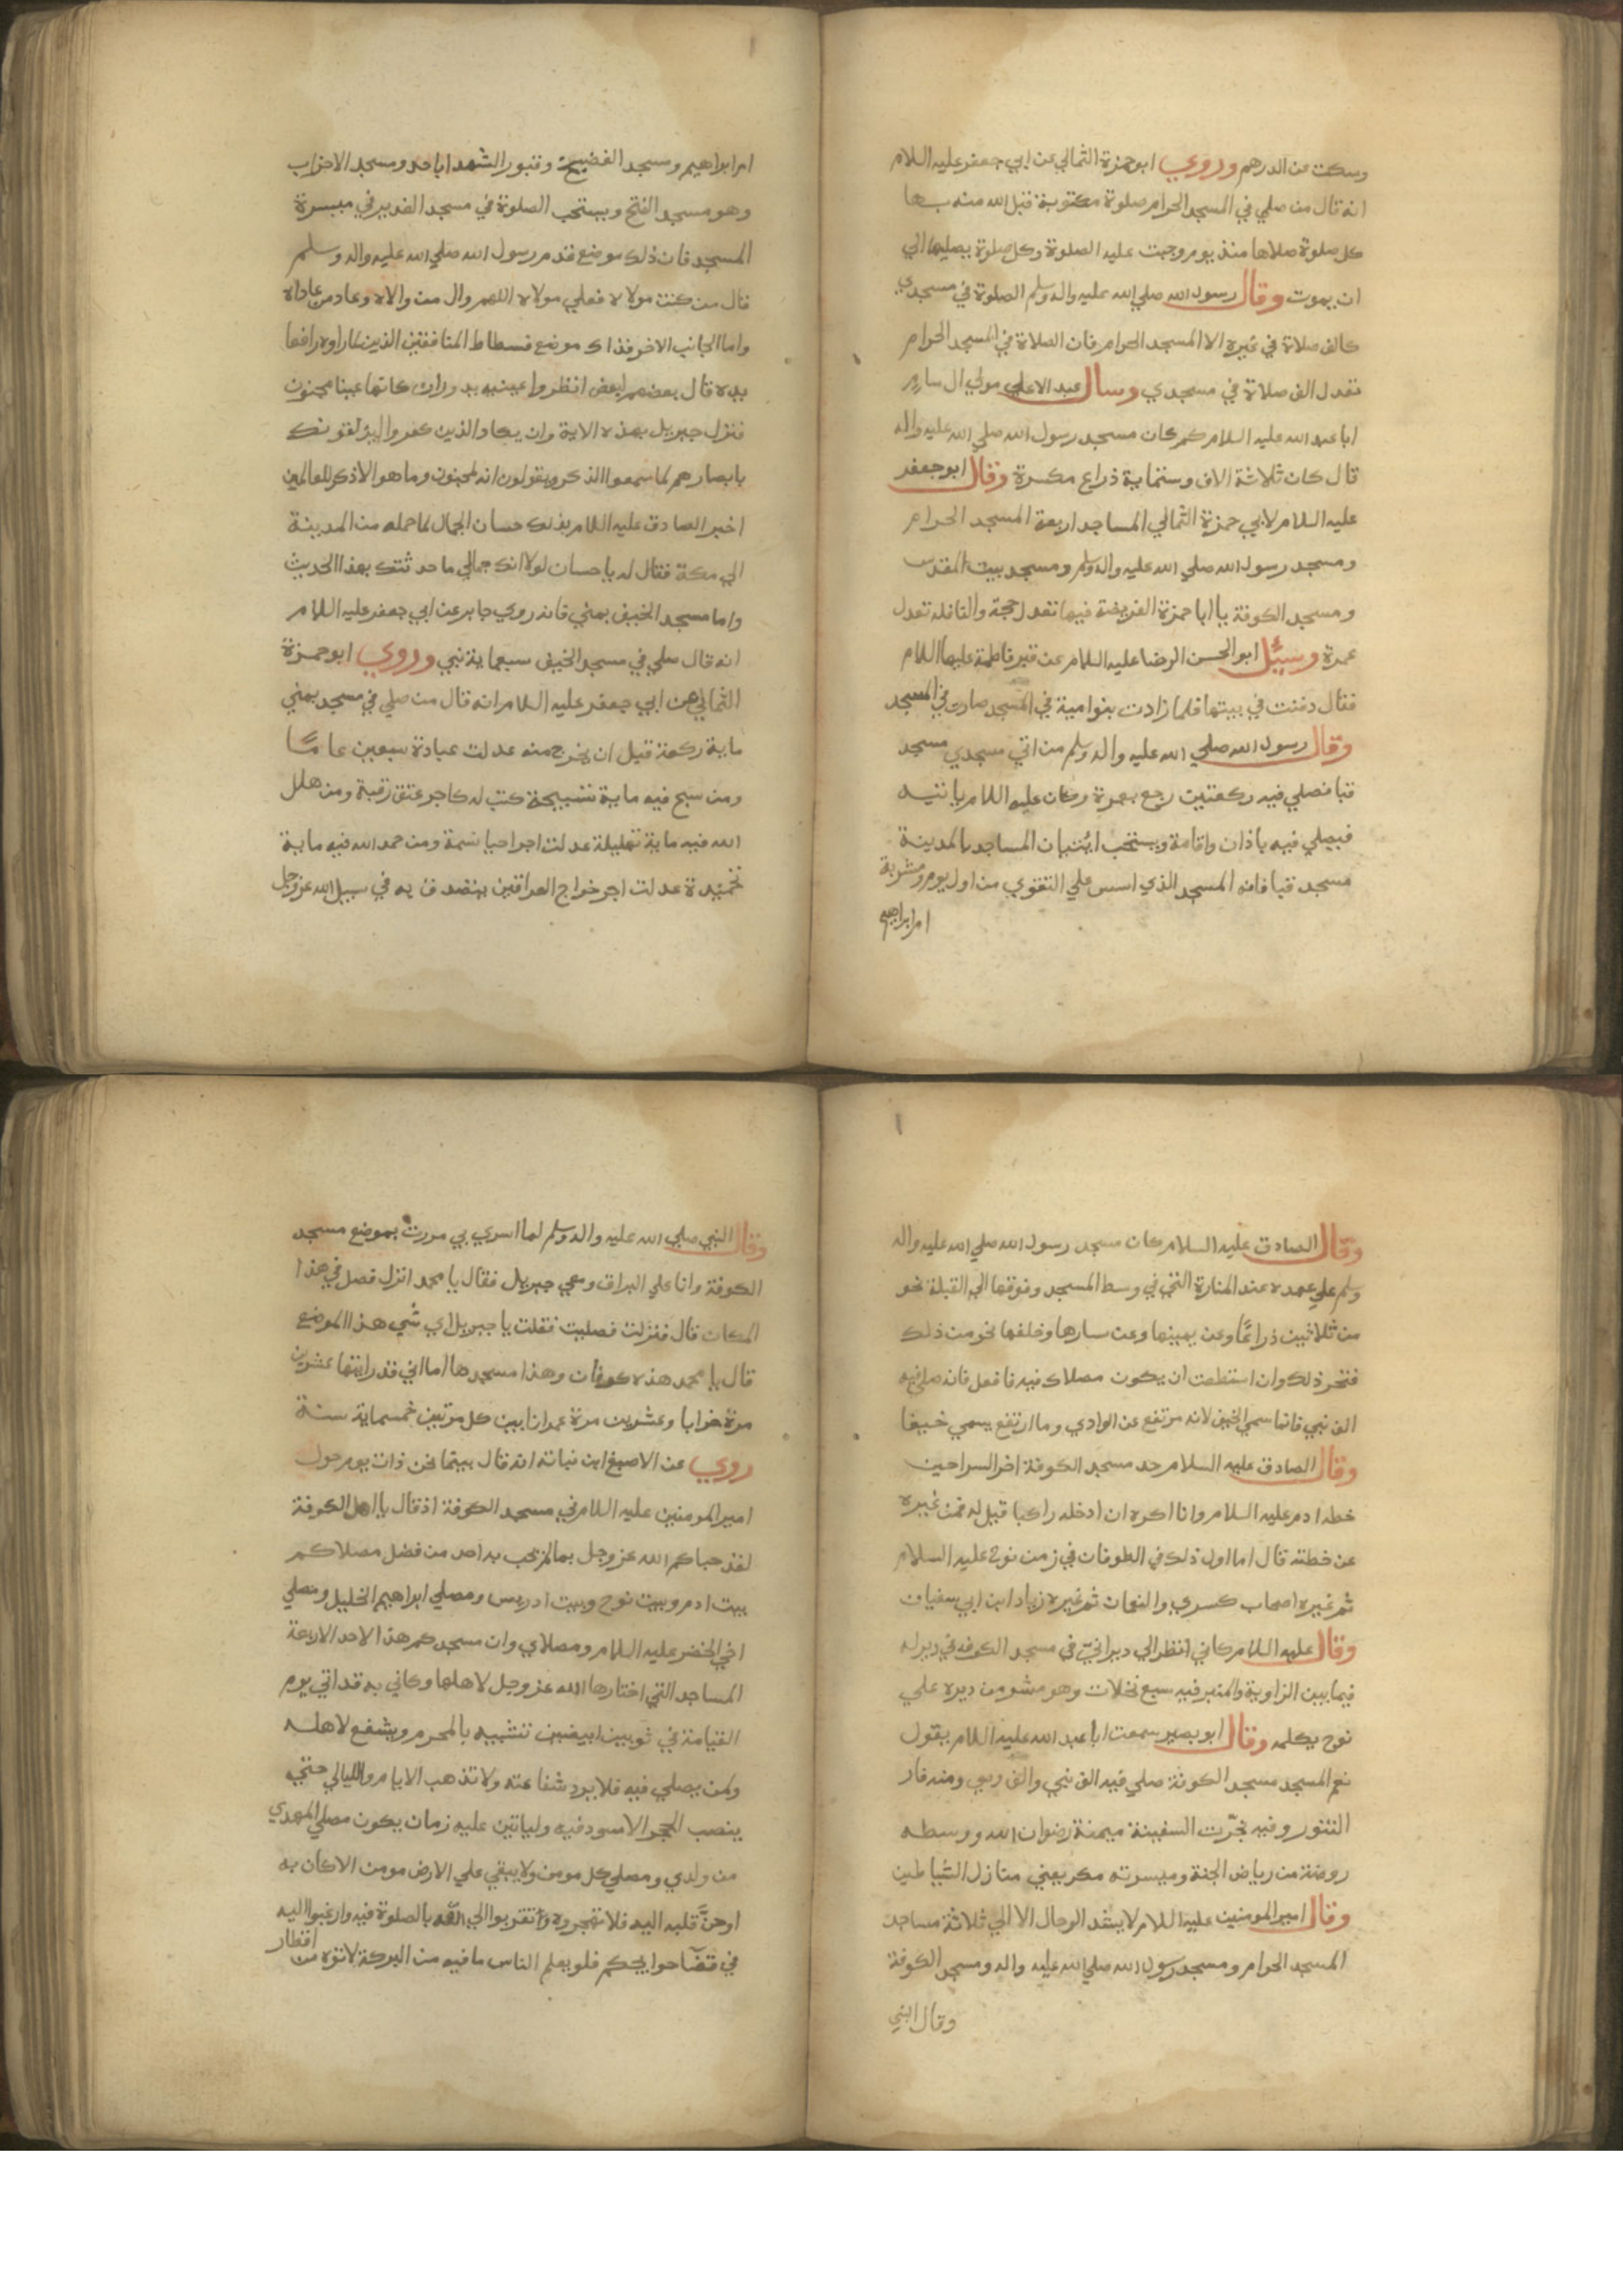 وسكت عن الدرهم وروي ابو حمزة الثمالي عن ابي جعفر عليه السلام
انه قال من صلي في المسجد الحرام صلوة مكتوبة قبل الله منه بها
كل صلوة صلاها منذ يوم وجبت عليه الصلوة وكل صلوة يصليها الي
ان يموت وقال رسول الله صلي الله عليه واله وسلم الصلوة في مسجدي
كالف صلاة في غيره الا المسجد الحرام فان الصلاة في المسجد الحرام
تعدل الف صلاة في مسجدي وسال عبد الاعلي مولي ال سام
ابا عبد الله عليه السلام كم كان مسجد رسول الله صلي الله عليه واله
قال كان ثلاثة الاف وستماية ذراع مكسرة وقال ابو جعفر
عليه السلام لابي حمزة الثمالي المساجد اربعة المسجد الحرام
ومسجد رسول الله صلي الله عليه واله وسلم ومسجد بيت المقدس
ومسجد الكوفة يا ابا حمزة الفريضة فيها تعدل حجة والنافلة تعدل
عمرة وسيل ابو الحسن الرضا عليه السلام عن قبر فاطمة عليها السلام
فقال دفنت في بيتها فلما زادت بنو امية في المسجد صارت في المسجد
وقال رسول الله صلي الله عليه واله وسلم من اتي مسجدي مسجد
قبا فصلي فيه ركعتين رجع بعمرة وكان عليه السلام ياتيه
فيصلي فيه باذان واقامة ويستحب اتيان المساجد بالمدينة
مسجد قبا فانه المسجد الذي اسس علي التقوي من اول يوم ومشربة
ام ابراهيم
ام ابراهيم ومسجد الفضيح وقبور الشهدا باحد ومسجد الاحزاب
وهو مسجد الفتح ويستحب الصلوة في مسجد الغدير في ميسرة
المسجد فان ذلك موضع قدم رسول الله صلي الله عليه واله وسلم
قال من كنت مولاه فعلي مولاه اللهم وال من والاه وعاد من عاداه
واما الجانب الاخر فذاك موضع فسطاط المنافقين الذين لما راوه رافعا
يده قال بعضهم لبعض انظروا عينيه يدوران كانها عينا مجنون
فنزل جبريل بهذه الاية وان يكاد الذين كفروا ليزلقونك
بابصارهم لما سمعوا الذكر ويقولون انه لمجنون وما هو الا ذكر للعالمين
اخبر الصادق عليه السلام بذلك حسان الجمال لما حمله من المدينة
الي مكة فقال له يا حسان لولا انك جمالي ما حدثتك بهذا الحديث
واما مسجد الخيف بمني فانه روي جابر عن ابي جعفر عليه السلام
انه قال صلي في مسجد الخيف سبعماية نبي وروي ابو حمزة
الثمالي عن ابي جعفر عليه السلام انه قال من صلي في مسجد بمني
ماية ركعة قبل ان يخرج منه عدلت عبادة سبعين عامًا
ومن سبح فيه ماية تسبيحة كتب له كاجر عتق رقبة ومن هلل
الله فيه ماية تهليلة عدلت اجر احيا نسمة ومن حمد الله فيه ماية
تحميدة عدلت اجر خراج العراقين يتصدق به في سبيل الله عز وجل
وقال الصادق عليه السلام كان مسجد رسول الله صلي الله عليه واله
وسلم علي عهده عند المنارة التي في وسط المسجد وفوقها الي القبلة نحو
من ثلاثين ذراعًا وعن يمينها وعن يسارها وخلفها نحو من ذلك
فتحر ذلك وان استطعت ان يكون مصلاك فيه فافعل فانه صلي فيه
الف نبي فانما سمي الخيف لانه مرتفع عن الوادي وما ارتفع يسمي خيفا
وقال الصادق عليه السلام حد مسجد الكوفة اخر السراجين
خطه ادم عليه السلام وانا اكره ان ادخله راكبا قيل له فمن غيره
عن خطته قال اما اول ذلك في الطوفان في زمن نوح عليه السلام
ثم غيره اصحاب كسري والنعمان ثم غيره زياد ابن ابي سفيان
وقال عليه السلام كاني انظر الي ديراني في مسجد الكوفة في دير له
فيما بين الزاوية والمنبر فيه سبع نخلات وهو مشرف من ديره علي
نوح يكلمه وقال ابو بصير سمعت ابا عبد الله عليه السلام يقول
نعم المسجد مسجد الكوفة صلي فيه الف نبي والف وصي ومنه فار
التنور وفيه نجرت السفينة ميمنة رضوان الله ووسطه
روضة من رياض الجنة وميسرته مكر يعني منازل الشياطين
وقال امير المومنين عليه السلام لا يشد الرحال الا الي ثلاثة مساجد
المسجد الحرام ومسجد رسول الله صلي الله عليه واله ومسجد الكوفة
وقال النبي
وقال النبي صلي الله عليه واله وسلم لما اسري بي مررت بموضع مسجد
الكوفة وانا علي البراق ومعي جبريل فقال يا محمد انزل فصل في هذا
المكان قال فنزلت فصليت فقلت يا جبريل اي شي هذا الموضع
قال يا محمد هذه كوفان وهذا مسجدها اما اني قد رايتها عشرين
مرة خرابا وعشرين مرة عمرانا بين كل مرتين خمسماية سنة
روي عن الاصبغ ابن نباتة انه قال بينما نحن ذات يوم حول
امير المومنين عليه السلام في مسجد الكوفة اذ قال يا اهل الكوفة
لقد حباكم الله عز وجل بما لم يحب به احد من فضل مصلاكم
بيت ادم وبيت نوح وبيت ادريس ومصلي ابراهيم الخليل ومصلي
اخي الخضر عليه السلام ومصلاي وان مسجدكم هذا لاحد الاربعة
المساجد التي اختارها الله عز وجل لاهلها وكاني به قد اتي يوم
القيامة في ثوبين ابيضين تشبيه بالمحرم ويشفع لاهله
ولمن يصلي فيه فلا يرد شفاعته ولا تذهب الايام والليالي حتي
ينصب الحجر الاسود فيه ولياتين عليه زمان يكون مصلي المهدي
من ولدي ومصلي كل مومن ولا يبقي علي الارض مومن الا كان به
او حنّ قلبه اليه فلا تهجروه وتقربوا الي الله بالصلوة فيه وارغبوا اليه
في قضا حوايجكم فلو يعلم الناس ما فيه من البركة لاتوه من اقطار